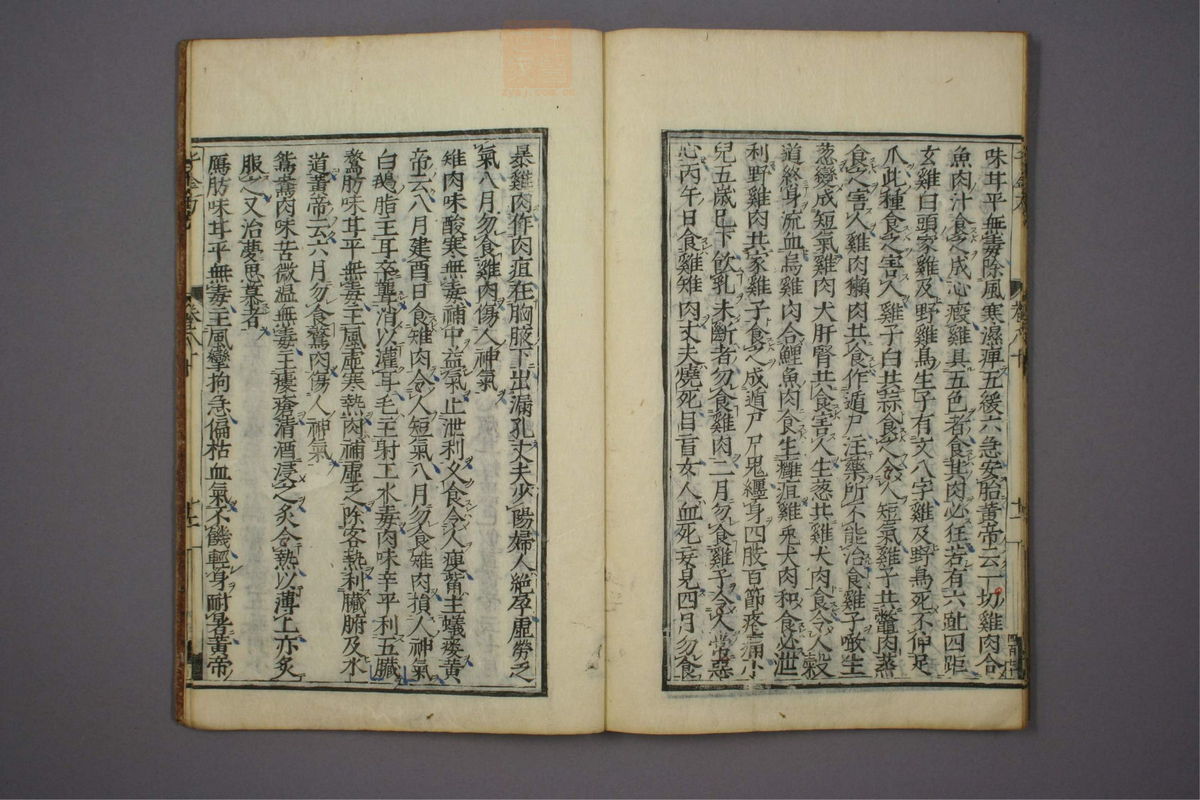 味甘平無毒除風寒濕痹五緩六急安胎黃帝云一切雞肉合
魚肉汁食之成心瘕雞具五色者食其肉必狂若有六趾四距
玄雞白頭家雞及野雞鳥生子有文八字雞及野鳥死不伸足
爪此種食之害人雞子白共蒜食之令人短氣雞子共鼈肉蒸
食之害人雞肉獺肉共食作遁尸注藥所不能治食雞子噉生
葱變成短氣雞肉犬肝腎共食害人生葱共雞犬肉食令人穀
道終身流血烏雞肉合鯉魚肉食生癰疽雞兎犬肉和食必泄
利野雞肉共家雞子食之成遁尸尸鬼纏身四肢百節疼痛小
兒五歲已下飲乳未斷者勿食雞肉二月勿食雞子令人常惡
心丙午日食雞雉肉丈夫燒死目盲女人血死妄見四月勿食
暴雞肉作肉疽在胸腋下出漏孔丈夫少陽婦人絶孕虛勞乏
氣八月勿食雞肉傷人神氣
雉肉味酸寒無毒補中益氣止泄利久食令人瘦觜主蟻瘻黃
帝云八月建酉日食雉肉令人短氣八月勿食雉肉損人神氣
白鵝脂主耳卒聾消以灌耳毛主射工水毒肉味辛平利五臟
鶩肪味甘平無毒主風虛寒熱肉補虛乏除客熱利臟腑及水
道黃帝云六月勿食鶩肉傷人神氣
鴛鴦肉味苦微温無毒主瘻瘡清酒浸之炙令熱以薄之亦炙
服之又治夢思慕者
鴈肪味甘平無毒主風攣拘急偏枯血氣不
輕身耐暑黃帝